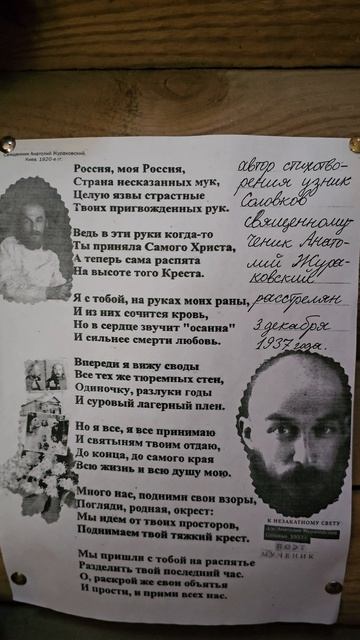 Священник Анатолий Жураковский.
Киев. 1920-е гг.
Россия, моя Россия,
Страна несказанных мук,
Целую язвы страстные
Твоих пригвожденных рук.
Ведь в эти руки когда-то
Ты приняла Самого Христа,
А теперь сама распята
На высоте того Креста.
Я с тобой, на руках моих раны,
И из них сочится кровь,
Но в сердце звучит "осанна"
И сильнее смерти любовь.
Впереди я вижу своды
Все тех же тюремных стен,
Одиночку, разлуки годы
И суровый лагерный плен.
Но я все, я все принимаю
И святыням твоим отдаю,
До конца, до самого края
Всю жизнь и всю душу мою.
Много нас, подними свои взоры,
Погляди, родная, окрест:
Мы идем от твоих просторов,
Поднимаем твой тяжкий крест.
Мы пришли с тобой на распятье
Разделить твой последний час.
О, раскрой же свои объятья
И прости, и прими всех нас.
автор стихотво-
рения узник
Соловков
священному-
ченик Анато-
лий Жура-
ковский
расстрелян
3 декабря
1937 года.
К НЕЗАКАТНОМУ СВЕТУ
ПОЭТ
МУЧЕНИК